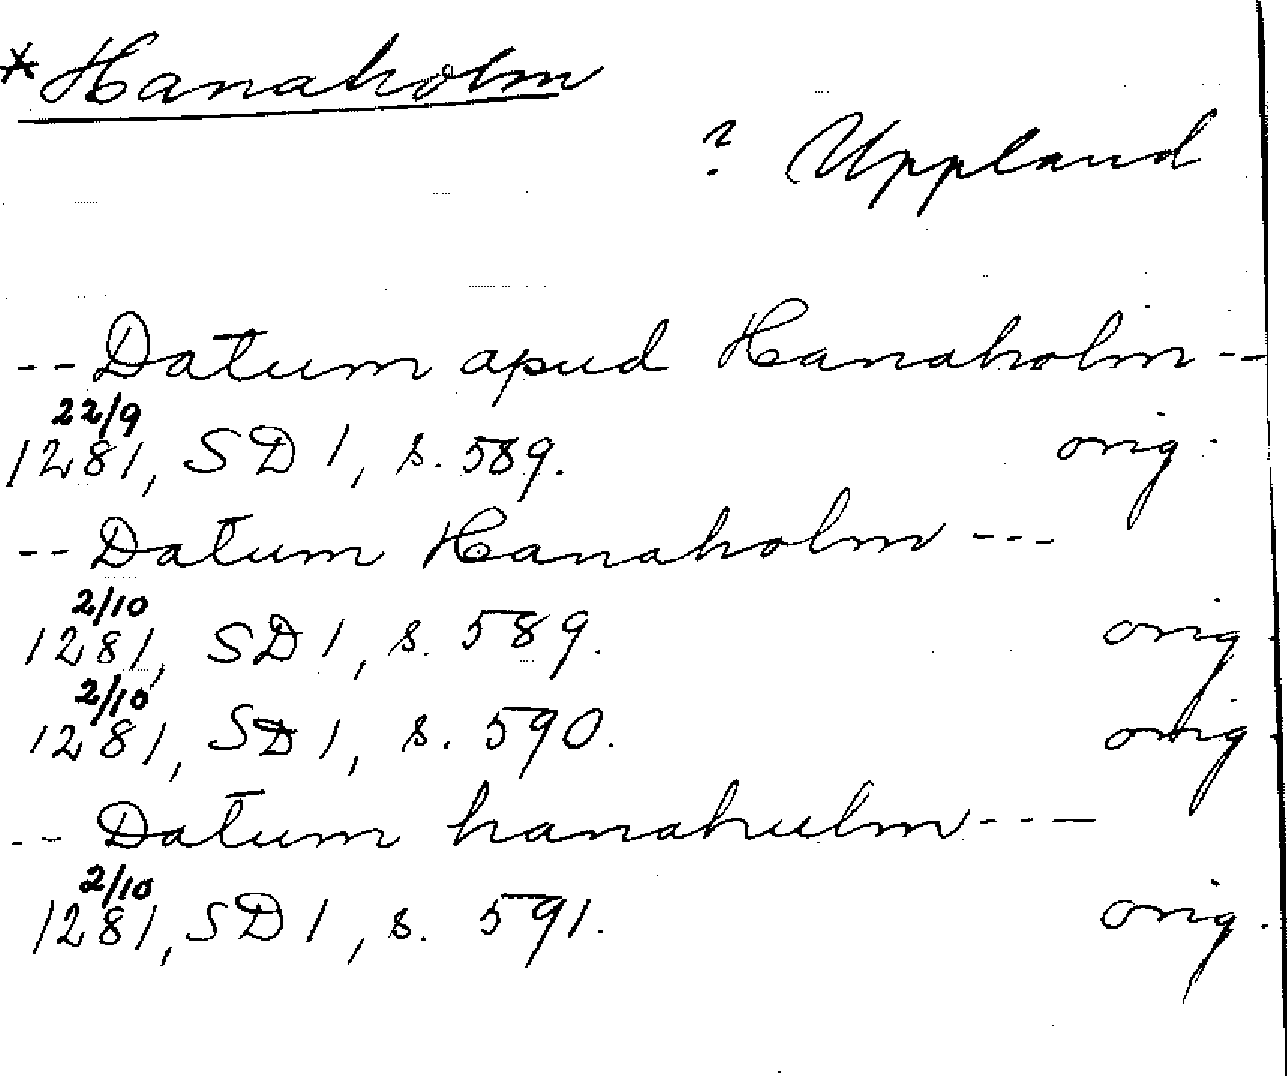 *Hanaholm
? Uppland
-- Datum apud Hanaholm --
22/9
1281, SD 1, s. 589. orig.
-- Datum Hanaholm ---
2/10
1281, SD 1, s. 589. orig.
2/10
1281, SD 1, s. 590. orig.
-- Datum hanahulm ---
2/10
1281, SD 1, s. 591. orig.